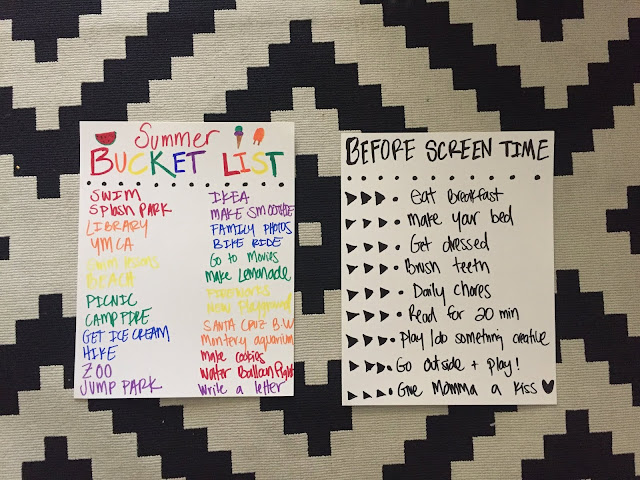 Summer
BUCKET LIST
SWIM
SPlash PARK
LIBRARY
YMCA
BEACH
PICNIC
CAMPFIRE
GET ICE CREAM
HIKE
ZOO
JUMP PARK
IKEA
MAKE SMOOTHIE
FAMILY PHOTOS
BIKE RIDE
Go to Movies
Make Lemonade
FIREWORKS
New Playground
SANTA CRUZ B.W
Montery aquarium
Make cookies
Water Balloon Fight
Write a letter
BEFORE SCREEN TIME
eat Breakfast
Make your bed
Get dressed
Brush teeth
Daily Chores
Read for 20 min
Play/do something creative
Go outside + play!
Give Momma a Kiss